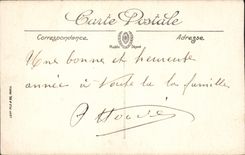 Carte Postale
Correspondance
Adresse
Une bonne et heureuse
année à toute la famille